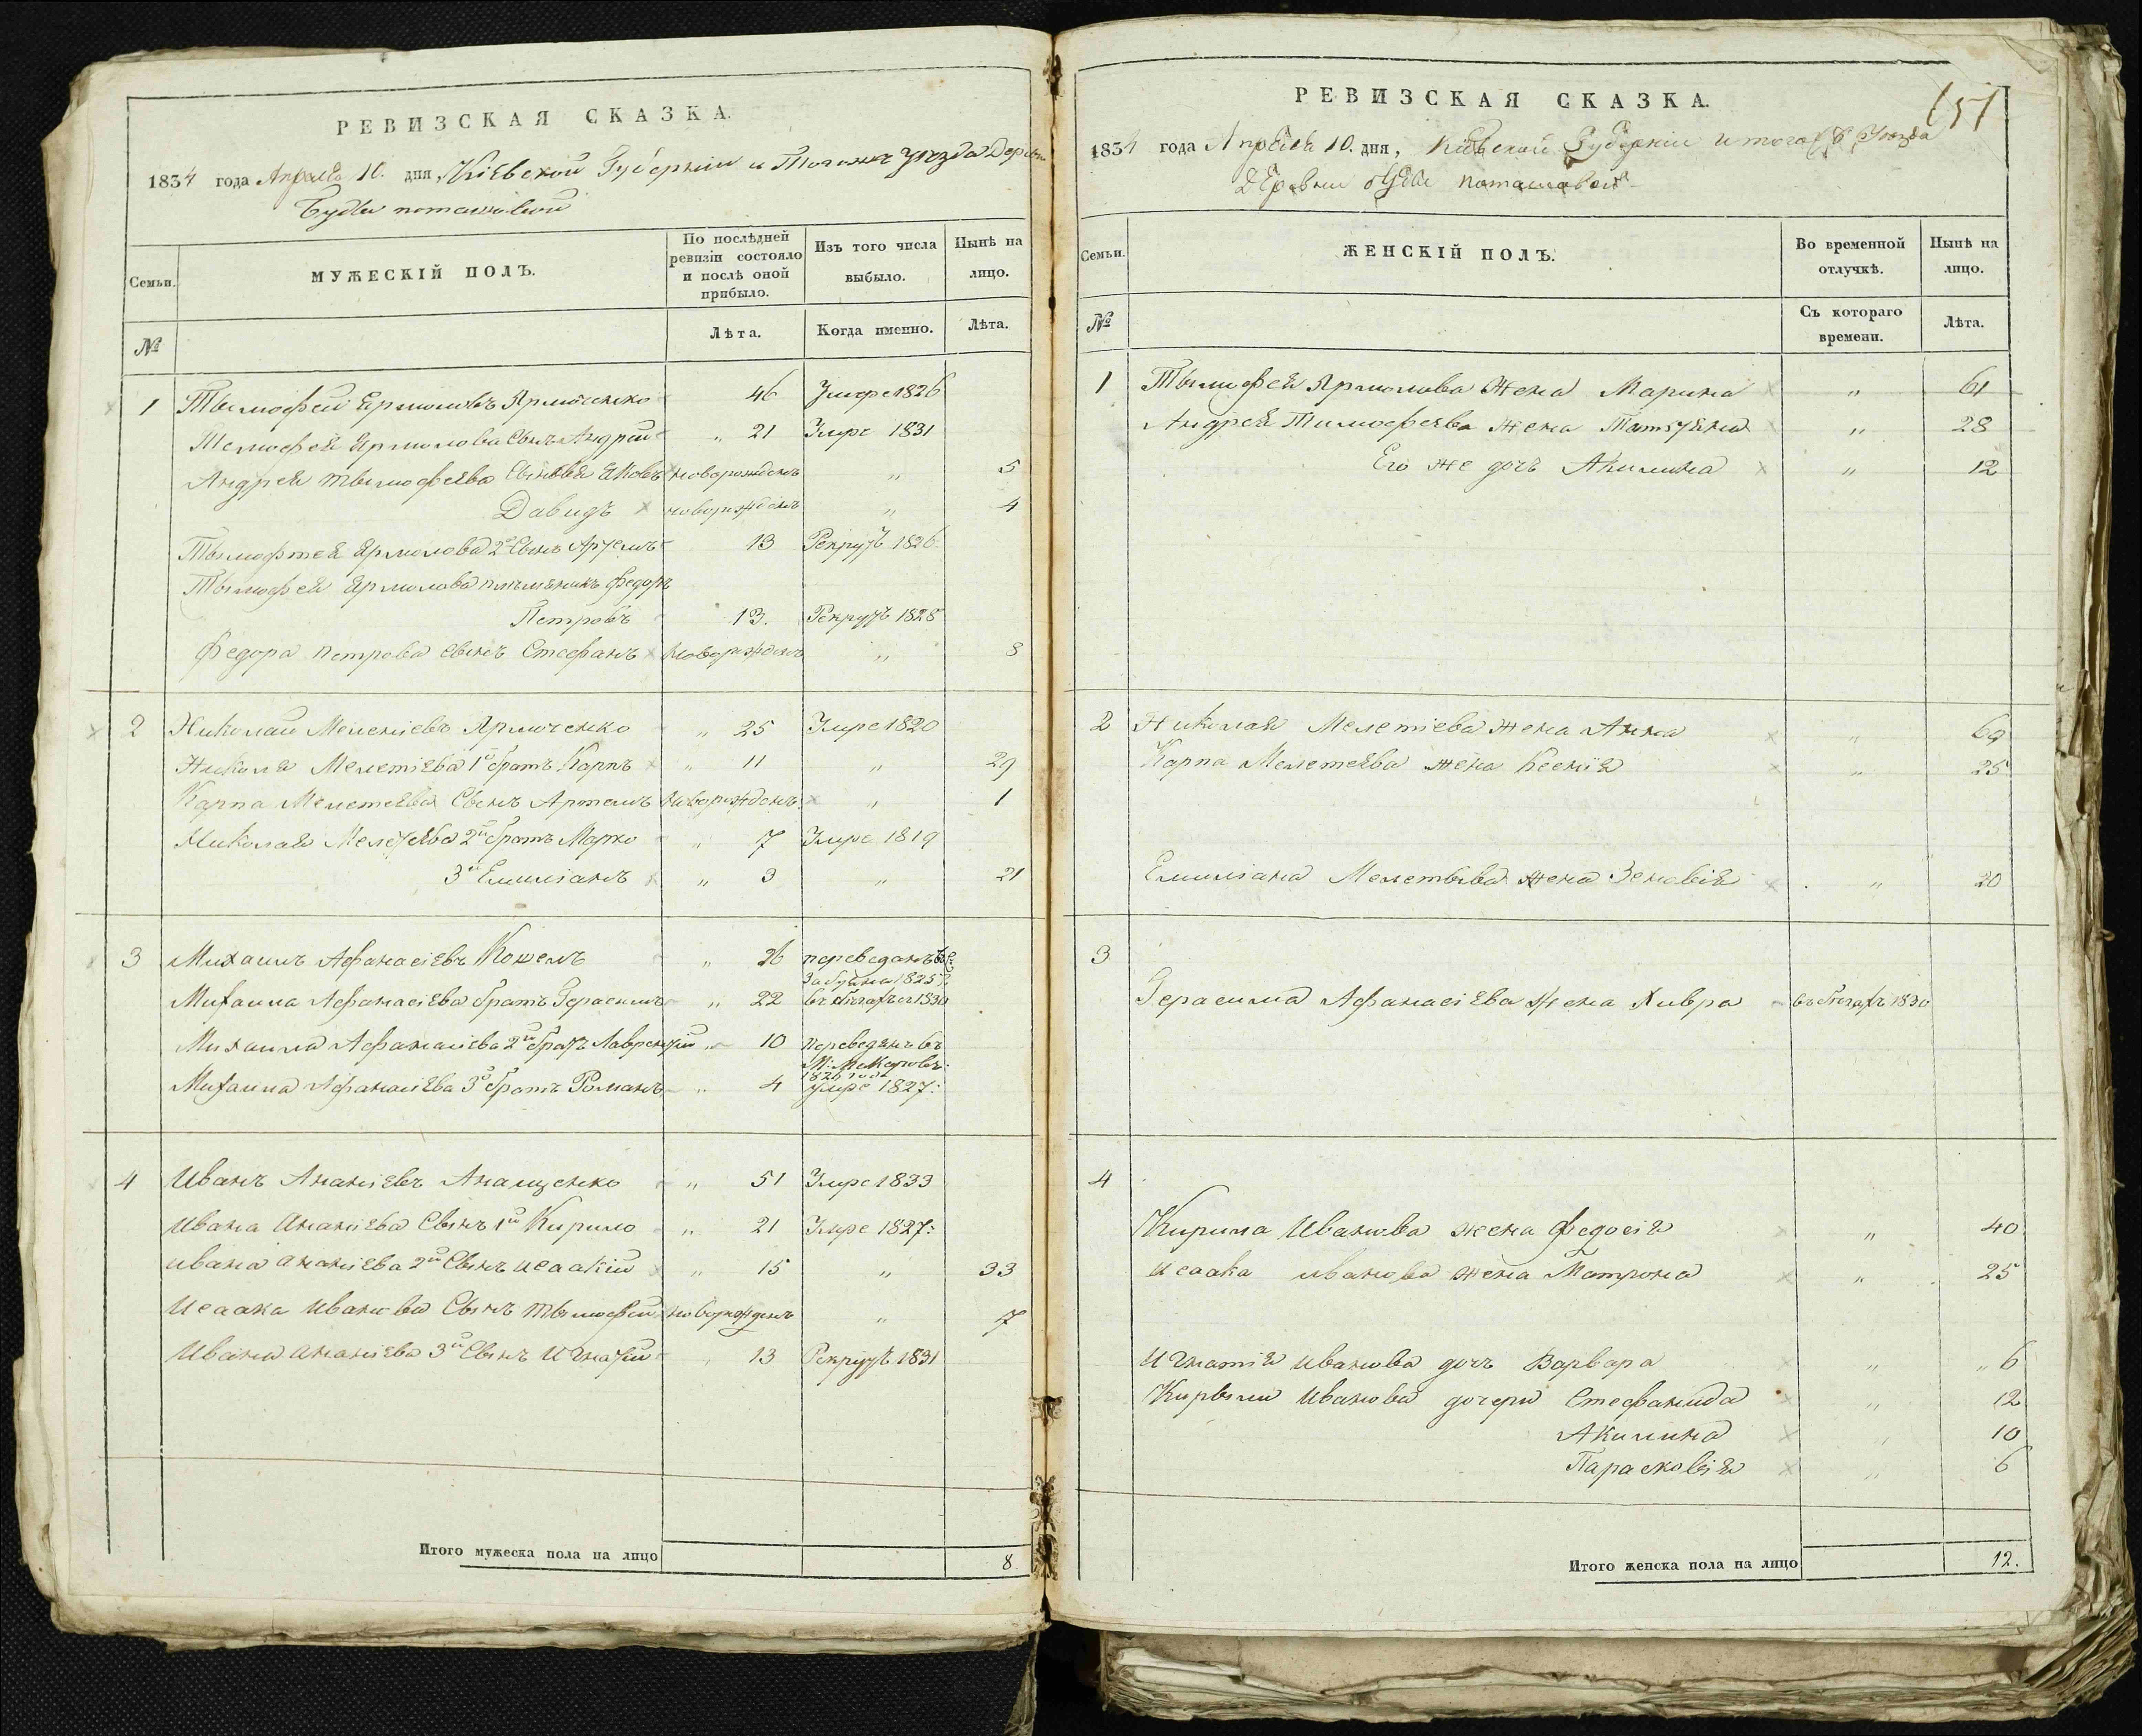 РЕВИЗСКАЯ СКАЗКА.
1834 года Апреля 10. дня, Кіевской Губерніи и Того жъ уезда Деревни
Будки поташовой
Семьи.
МУЖЕСКІЙ ПОЛЪ.
По послѣдней ревизіи состояло и послѣ оной прибыло.
Изъ того числа выбыло.
Нынѣ на лицо.
№
Лѣта.
Когда именно.
Лѣта.
1 Тымофей Ермоловъ Ярмоленко 46 Умре 1826
Темофея Ярмолова Сынъ Андрей " 21 Умре 1831
Андрея тымофеява Сыновья Яковъ новорожденъ " 5
Давидъ новорожденъ " 4
Тымофтея Ярмолова 2й Сынъ Артемъ 13 Рекрутъ 1826
Тымофея Ярмолова племяникъ Федоръ
Петровъ 13. Рекрутъ 1828
Федора Петрова сынъ Стефанъ новорожденъ " 8
2 Николай Мелетіевъ Ярмоченко " 25 Умре 1820
Николая Мелетіева 1й братъ Карпъ " 11 " 29
Карпа Мелетеява Сынъ Артемъ новорожденъ " 1
Николая Мелетеява 2й братъ Марко " 7 Умре 1819
3й Емиліанъ " 3 " 21
3 Михаилъ Афанасіевъ Кошель " 26 переведенъ
1825
Михаила Афанасіева братъ Герасимъ " 22 въ бегахъ с 1830
Михаила Афанасіева 2й братъ Лаврентій " 10 переведенъ въ
М: Макаровъ
1826 года
Михаила Афанасіева 3й братъ Романъ " 4 умре 1827:
4 Иванъ Ананіевъ Анащенко " 51 Умре 1833
Ивана Ананіева Сынъ 1й Кирило " 21 Умре 1827:
Ивана Ананіева 2й Сынъ Исаакій " 15 " 33
Исаака Иванова Сынъ Тымофей новорожденъ " 7
Ивана Ананіева 3й Сынъ Игнатій " 13 Рекрутъ 1831
Итого мужеска пола на лицо 8
РЕВИЗСКАЯ СКАЗКА.
151
1834 года Апреля 10. дня, Кіевской Губерніи и тогожъ Уезда
Деревни будки поташовой
Семьи.
ЖЕНСКІЙ ПОЛЪ.
Во временной отлучкѣ.
Нынѣ на лицо.
№
Съ котораго времени.
Лѣта.
1 Тымофея Ярмолова Жена Марина " 61
Андрея Тимофеява жена Татіяна " 28
Его же дочь Акилина " 12
2 Николая Мелетіева жена Анна " 69
Карпа Мелетеява жена Ксенія " 25
Емиліана Мелетьява жена Зеновія " 20
3
Герасима Афанасіева Жена Хивря въ бегахъ 1830
4
Кирила Иванова жена Федосія " 40
Исаака иванова жена Матрона " 25
Игнатія иванова дочь Варвара " 6
Кирыла Иванова дочери Стефанида " 12
Акилина " 10
Парасковія " 6
Итого женска пола на лицо 12.